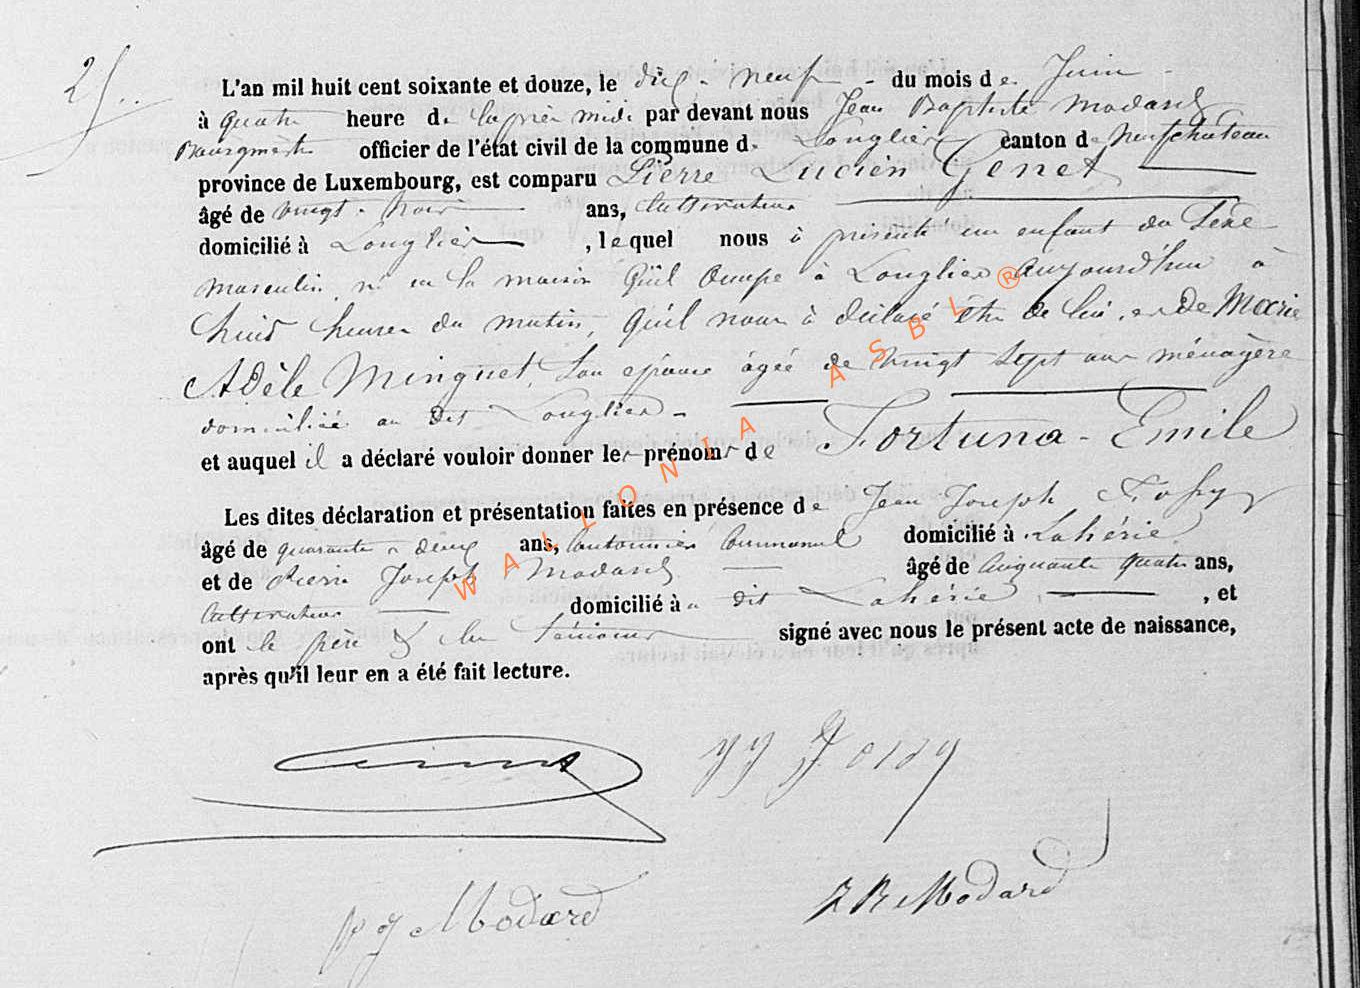 25
L'an mil huit cent soixante et douze, le dix-neuf du mois de Juin
à quatre heure de l'après midi par devant nous Jean Baptiste Modard
Bourgmestre officier de l'état civil de la commune de Longlier canton de Neufchateau
province de Luxembourg, est comparu Pierre Lucien Genet
âgé de vingt-trois ans, cultivateur
domicilié à Longlier, lequel nous à présenté un enfant du Sexe
masculin né en la maison qu'il occupe à Longlier aujourd'hui à
huit heures du matin, qu'il nous à déclaré être de lui, et de Marie
Adèle Minguet, son épouse âgée de vingt sept ans ménagère
domiciliée au dit Longlier
et auquel il a déclaré vouloir donner les prénoms de Fortuna-Emile
Les dites déclaration et présentation faites en présence de Jean Joseph
âgé de quarante-deux ans, cantonnier Communal domicilié à Lahérie
et de Pierre Joseph Modard âgé de cinquante quatre ans,
cultivateur domicilié à dit Lahérie, et
ont le père & les témoins signé avec nous le présent acte de naissance,
après qu'il leur en a été fait lecture.
JJ
PJ Modard
JB Modard
WALLONIA ASBL ®